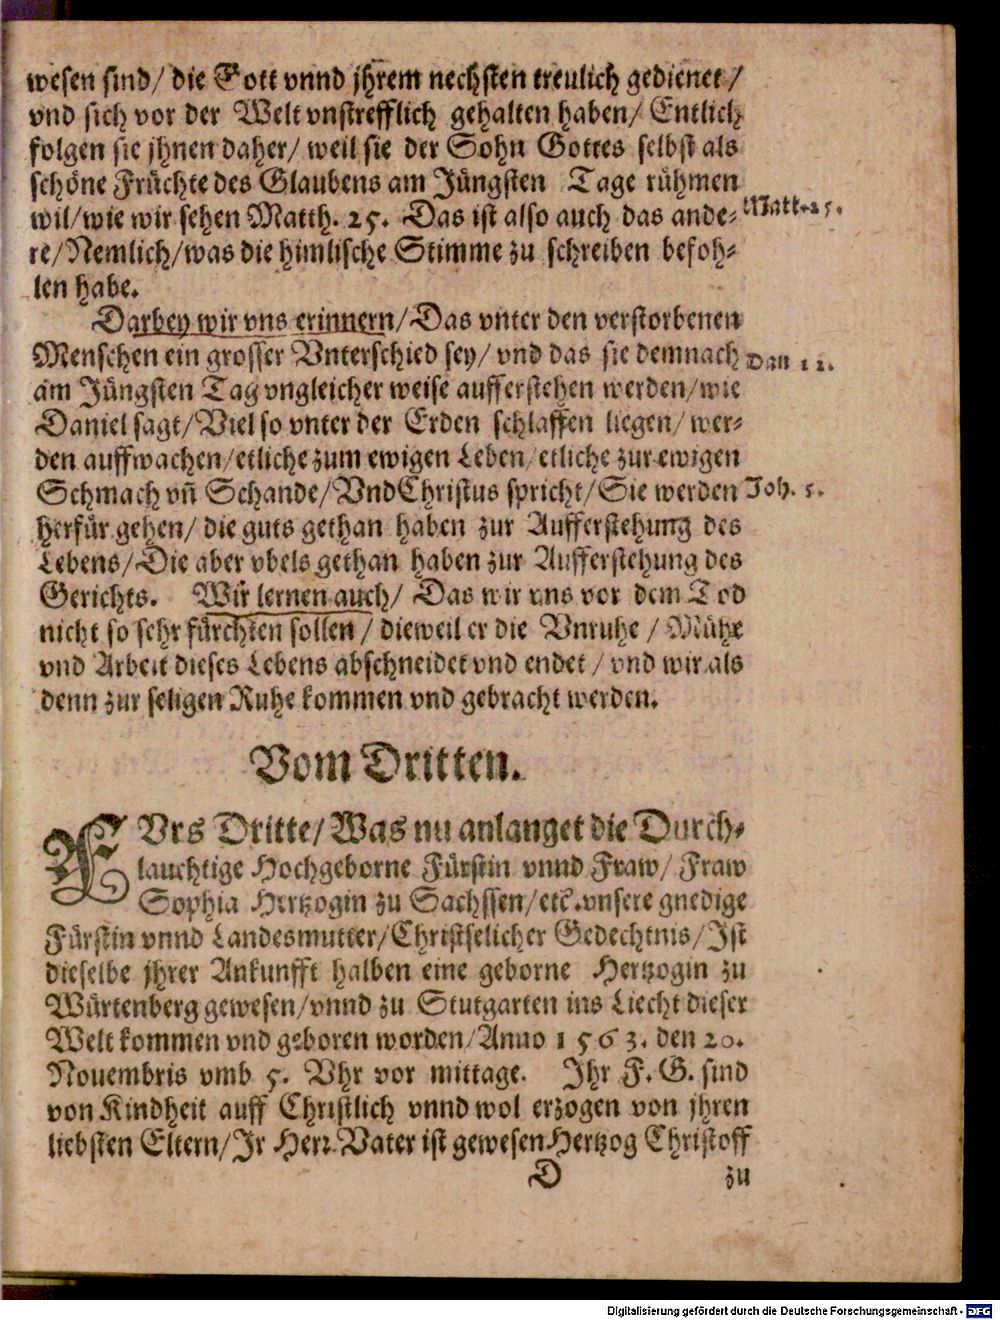 wesen sind/ die Gott vnnd jhrem nechsten treulich gedienet/
vnd sich vor der Welt vnstrefflich gehalten haben/ Entlich
folgen sie jhnen daher/ weil sie der Sohn Gottes selbst als
schöne Früchte des Glaubens am Jüngsten Tage rühmen
wil/wie wir sehen Matth. 25. Das ist also auch das ande-
Matt. 25.
re/Nemlich/was die himlische Stimme zu schreiben befoh-
len habe.
Darbey wir vns erinnern/Das vnter den verstorbenen
Menschen ein grosser Vnterschied sey/ vnd das sie demnach
Dan 12.
am Jüngsten Tag vngleicher weise aufferstehen werden/wie
Daniel sagt/Viel so vnter der Erden schlaffen liegen/ wer-
den auffwachen/etliche zum ewigen Leben/etliche zur ewigen
Schmach vn̄ Schande/VndChristus spricht/Sie werden
Joh. 5.
herfür gehen/ die guts gethan haben zur Aufferstehung des
Lebens/Die aber vbels gethan haben zur Aufferstehung des
Gerichts. Wir lernen auch/ Das wir vns vor dem Tod
nicht so sehr fürchten sollen/ dieweil er die Vnruhe/ Mühe
vnd Arbeit dieses Lebens abschneidet vnd endet/ vnd wir als
denn zur seligen Ruhe kommen vnd gebracht werden.
Vom Dritten.
FVrs Dritte/Was nu anlanget die Durch-
lauchtige Hochgeborne Fürstin vnnd Fraw/ Fraw
Sophia Hertzogin zu Sachssen/etc. vnsere gnedige
Fürstin vnnd Landesmutter/Christselicher Gedechtnis/Ist
dieselbe jhrer Ankunfft halben eine geborne Hertzogin zu
Würtenberg gewesen/vnnd zu Stutgarten ins Liecht dieser
Welt kommen vnd geboren worden/Anno 1563. den 20.
Nouembris vmb 5. Vhr vor mittage. Ihr F. G. sind
von Kindheit auff Christlich vnnd wol erzogen von jhren
liebsten Eltern/Ir Herr Vater ist gewesen Hertzog Christoff
D zu
Digitalisierung gefördert durch die Deutsche Forschungsgemeinschaft - DFG